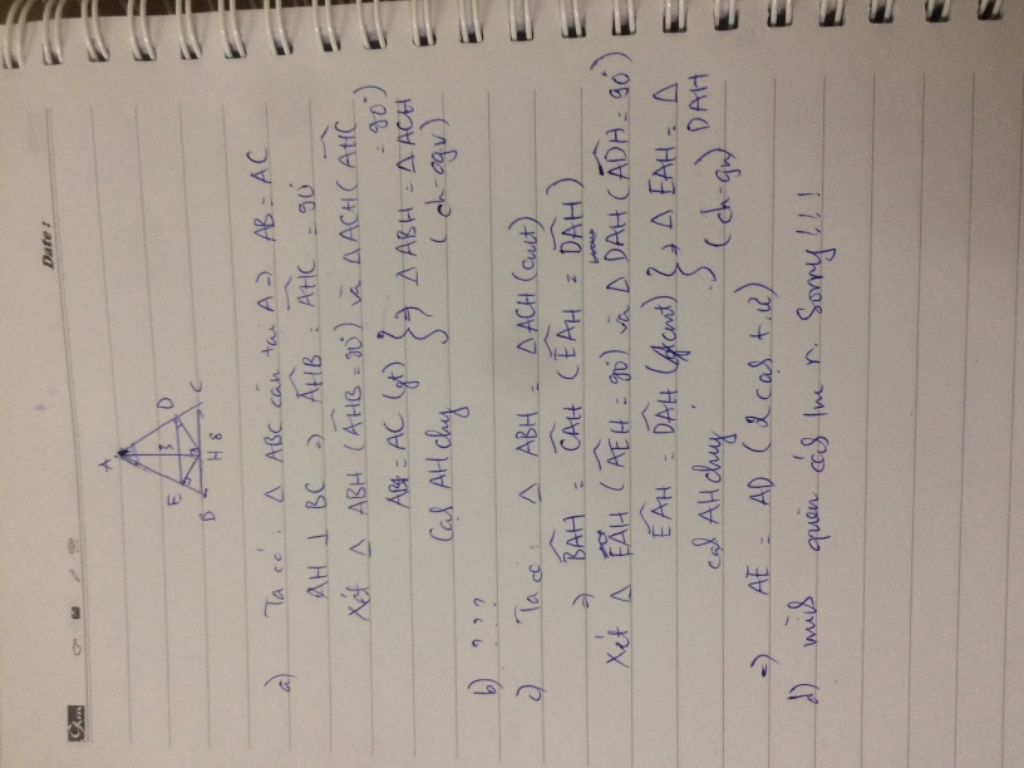 Date :
A
E
D
3
B
H
8
C
a) Ta có : Δ ABC cân tại A => AB = AC
AH ⊥ BC => AHB = AHC = 90°
Xét Δ ABH (AHB = 90°) và Δ ACH (AHC = 90°)
AB = AC (gt) } => Δ ABH = Δ ACH
Cạh AH chug (ch-cgv)
b) ? ? ?
c) Ta có : Δ ABH = Δ ACH (cmt)
=> BAH = CAH (EAH = DAH)
Xét Δ EAH (AEH = 90°) và Δ DAH (ADH = 90°)
EAH = DAH (cmt) } => Δ EAH = Δ DAH
cạh AH chug (ch-gn)
=> AE = AD (2 cạh t.ư)
d) mih quên cáh lm r. Sorry !!!